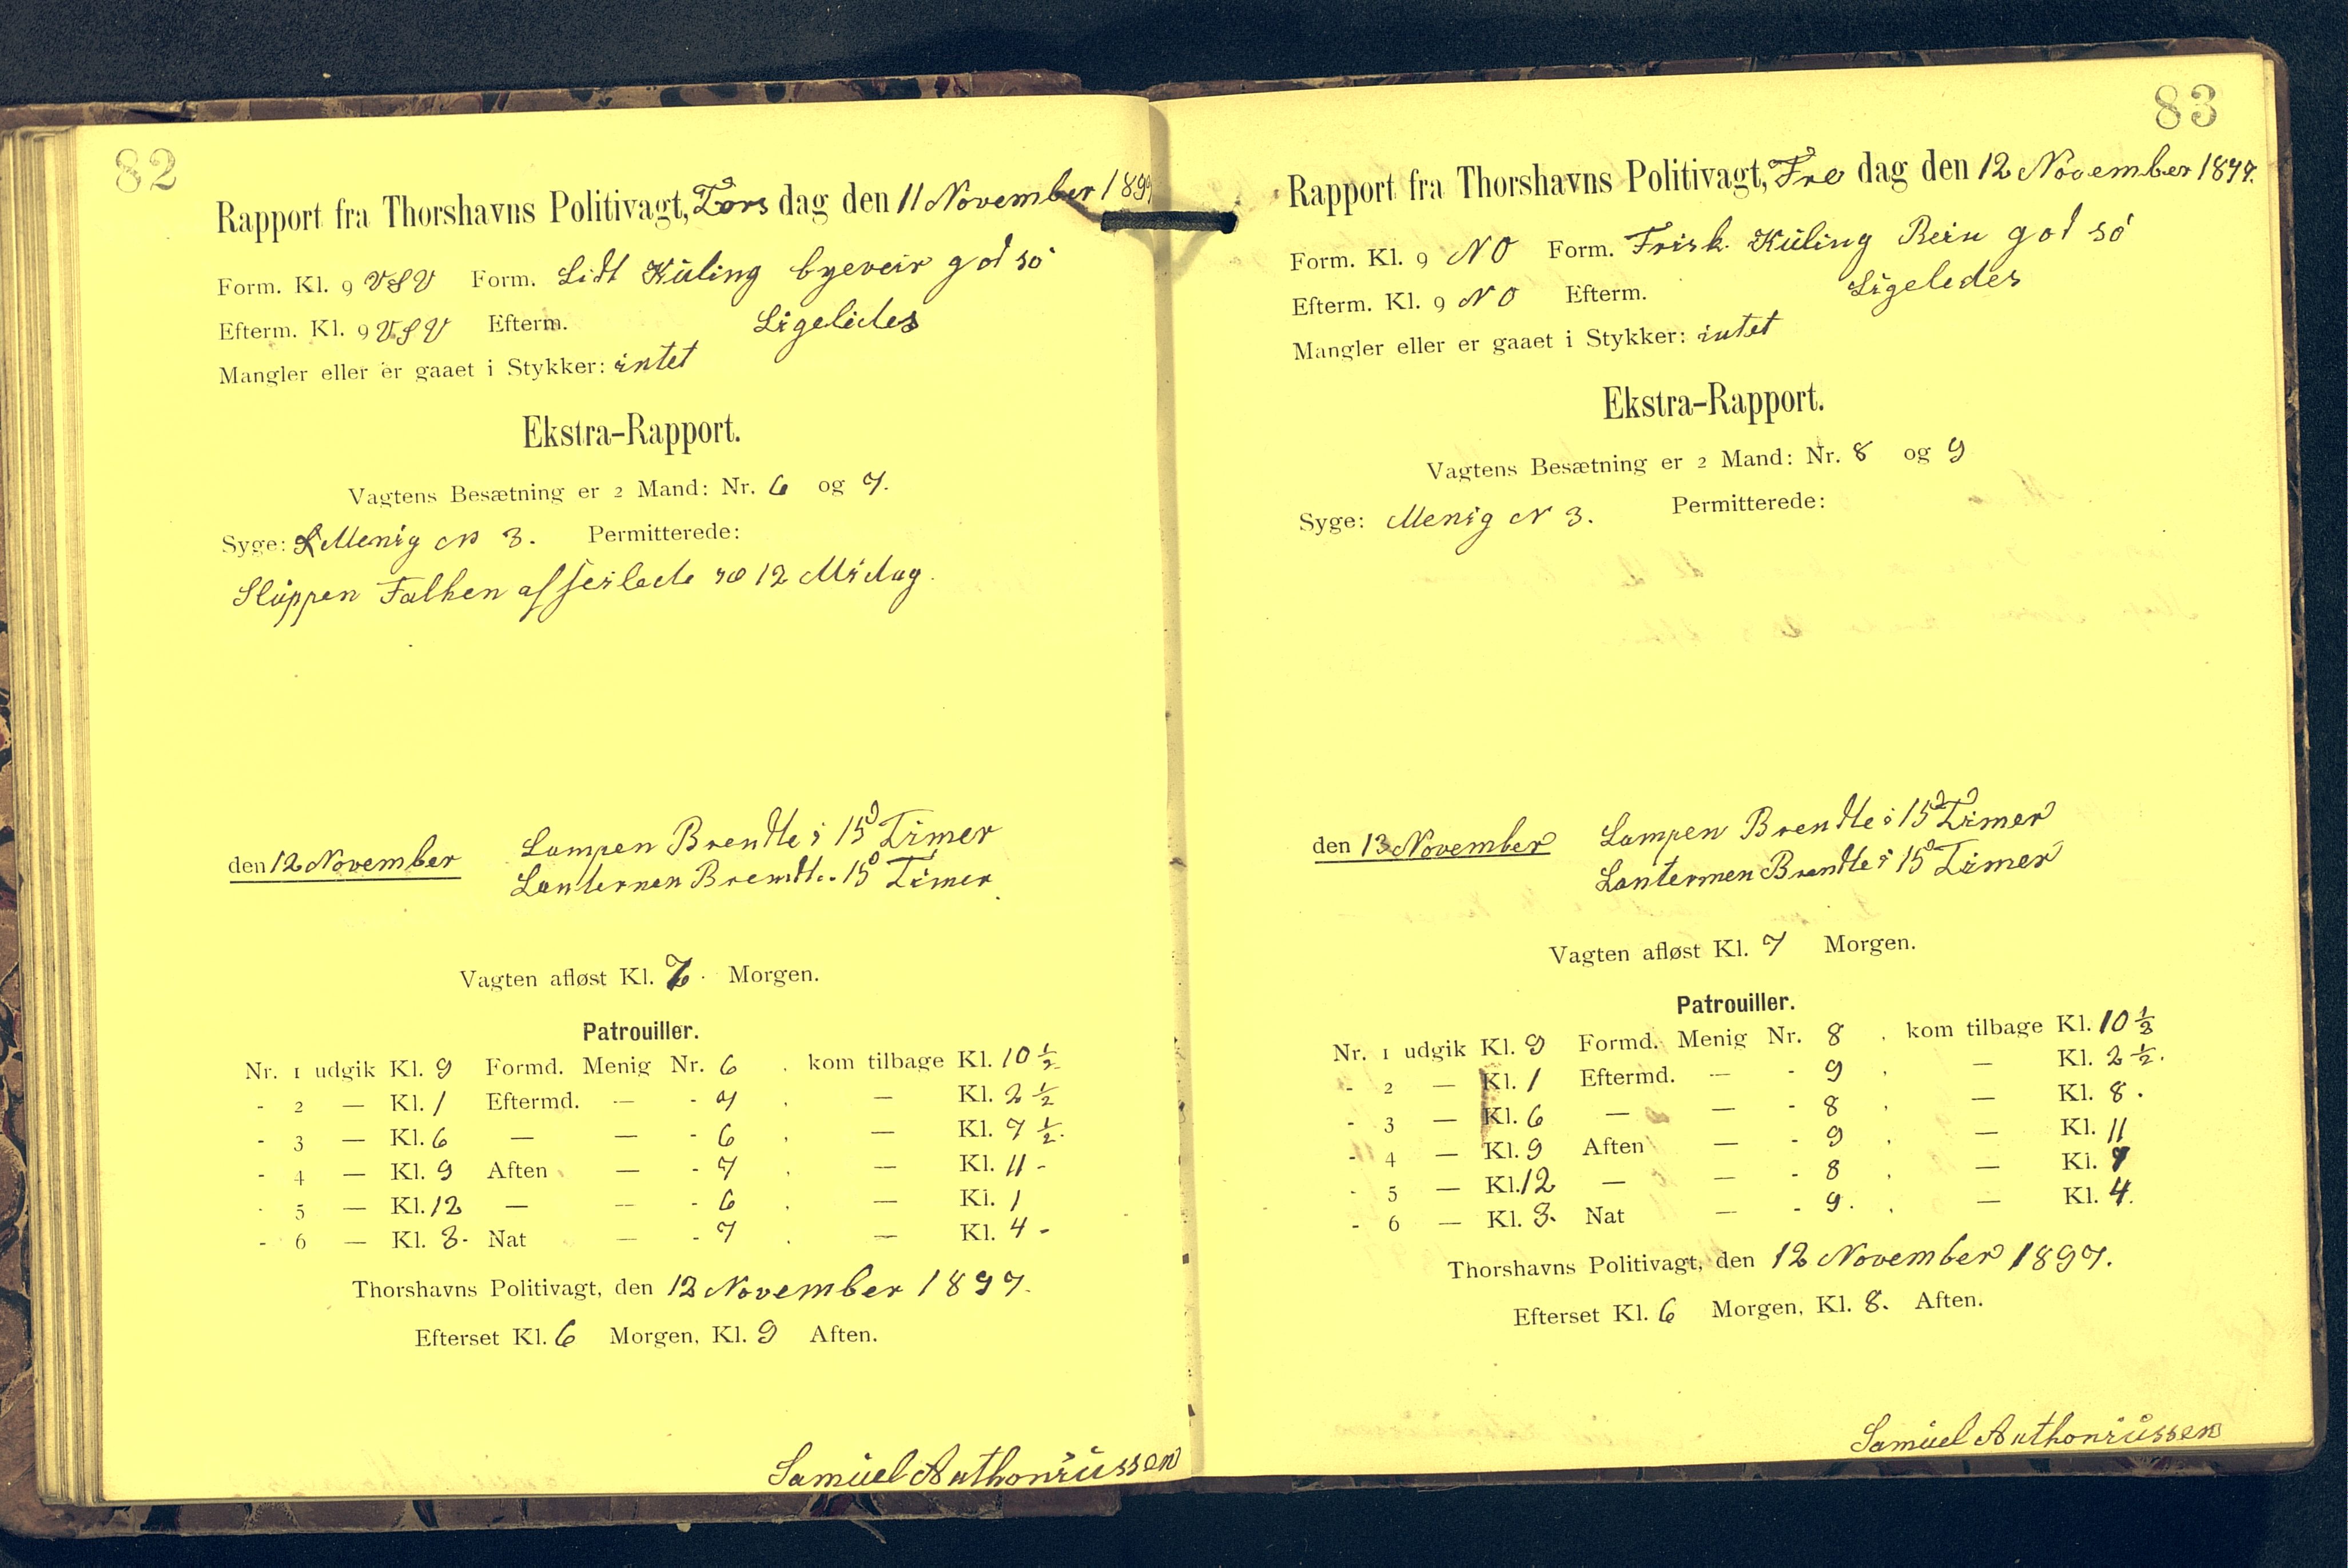 82
Rapport fra Thorshavns Politivagt, Tors dag den 11 November 1897
Form. Kl. 9 VSV Form. Lidt Küling byeveir god sö
Efterm. Kl. 9 VSV Efterm. Ligeledes
Mangler eller er gaaet i Stykker: intet
Ekstra-Rapport.
Vagtens Besætning er 2 Mand: Nr. 6 og 7.
Syge: Menig N 3. Permitterede:
Slüppen Falken afseilede 12 Midag.
den 12 November Lampen Brendte i 15 Timer
Lanternen Brendte i 15 Timer
Vagten afløst Kl. 7. Morgen.
Patrouiller.
Nr. 1 udgik Kl. 9 Formd. Menig Nr. 6 . kom tilbage Kl. 10 ½
- 2 — Kl. 1 Eftermd. — - 7 . — Kl. 2 ½
- 3 — Kl. 6 — — - 6 . — Kl. 7 ½.
- 4 — Kl. 9 Aften — - 7 . — Kl. 11 -
- 5 — Kl. 12 — — - 6 . — Kl. 1
- 6 — Kl. 3. Nat — - 7 . — Kl. 4 -
Thorshavns Politivagt, den 12 November 1897.
Efterset Kl. 6 Morgen, Kl. 9 Aften.
Samüel Anthoniüssen
83
Rapport fra Thorshavns Politivagt, Fre dag den 12 November 1897.
Form. Kl. 9 NO Form. Frisk Küling Rein god sö
Efterm. Kl. 9 NO Efterm. Ligeledes
Mangler eller er gaaet i Stykker: intet
Ekstra-Rapport.
Vagtens Besætning er 2 Mand: Nr. 8 og 9
Syge: Menig N 3. Permitterede:
den 13 November Lampen Brendte i 15 Timer
Lanternen Brendte i 15 Timer
Vagten afløst Kl. 7 Morgen.
Patrouiller.
Nr. 1 udgik Kl. 9 Formd. Menig Nr. 8 . kom tilbage Kl. 10 ⅓
- 2 — Kl. 1 Eftermd. — - 9 . — Kl. 2 ½.
- 3 — Kl. 6 — — - 8 . — Kl. 8.
- 4 — Kl. 9 Aften — - 9 . — Kl. 11
- 5 — Kl. 12 — — - 8 . — Kl.
- 6 — Kl. 3. Nat — - 9. . — Kl. 4.
Thorshavns Politivagt, den 12 November 1897.
Efterset Kl. 6 Morgen, Kl. 8. Aften.
Samüel Anthoniüssen